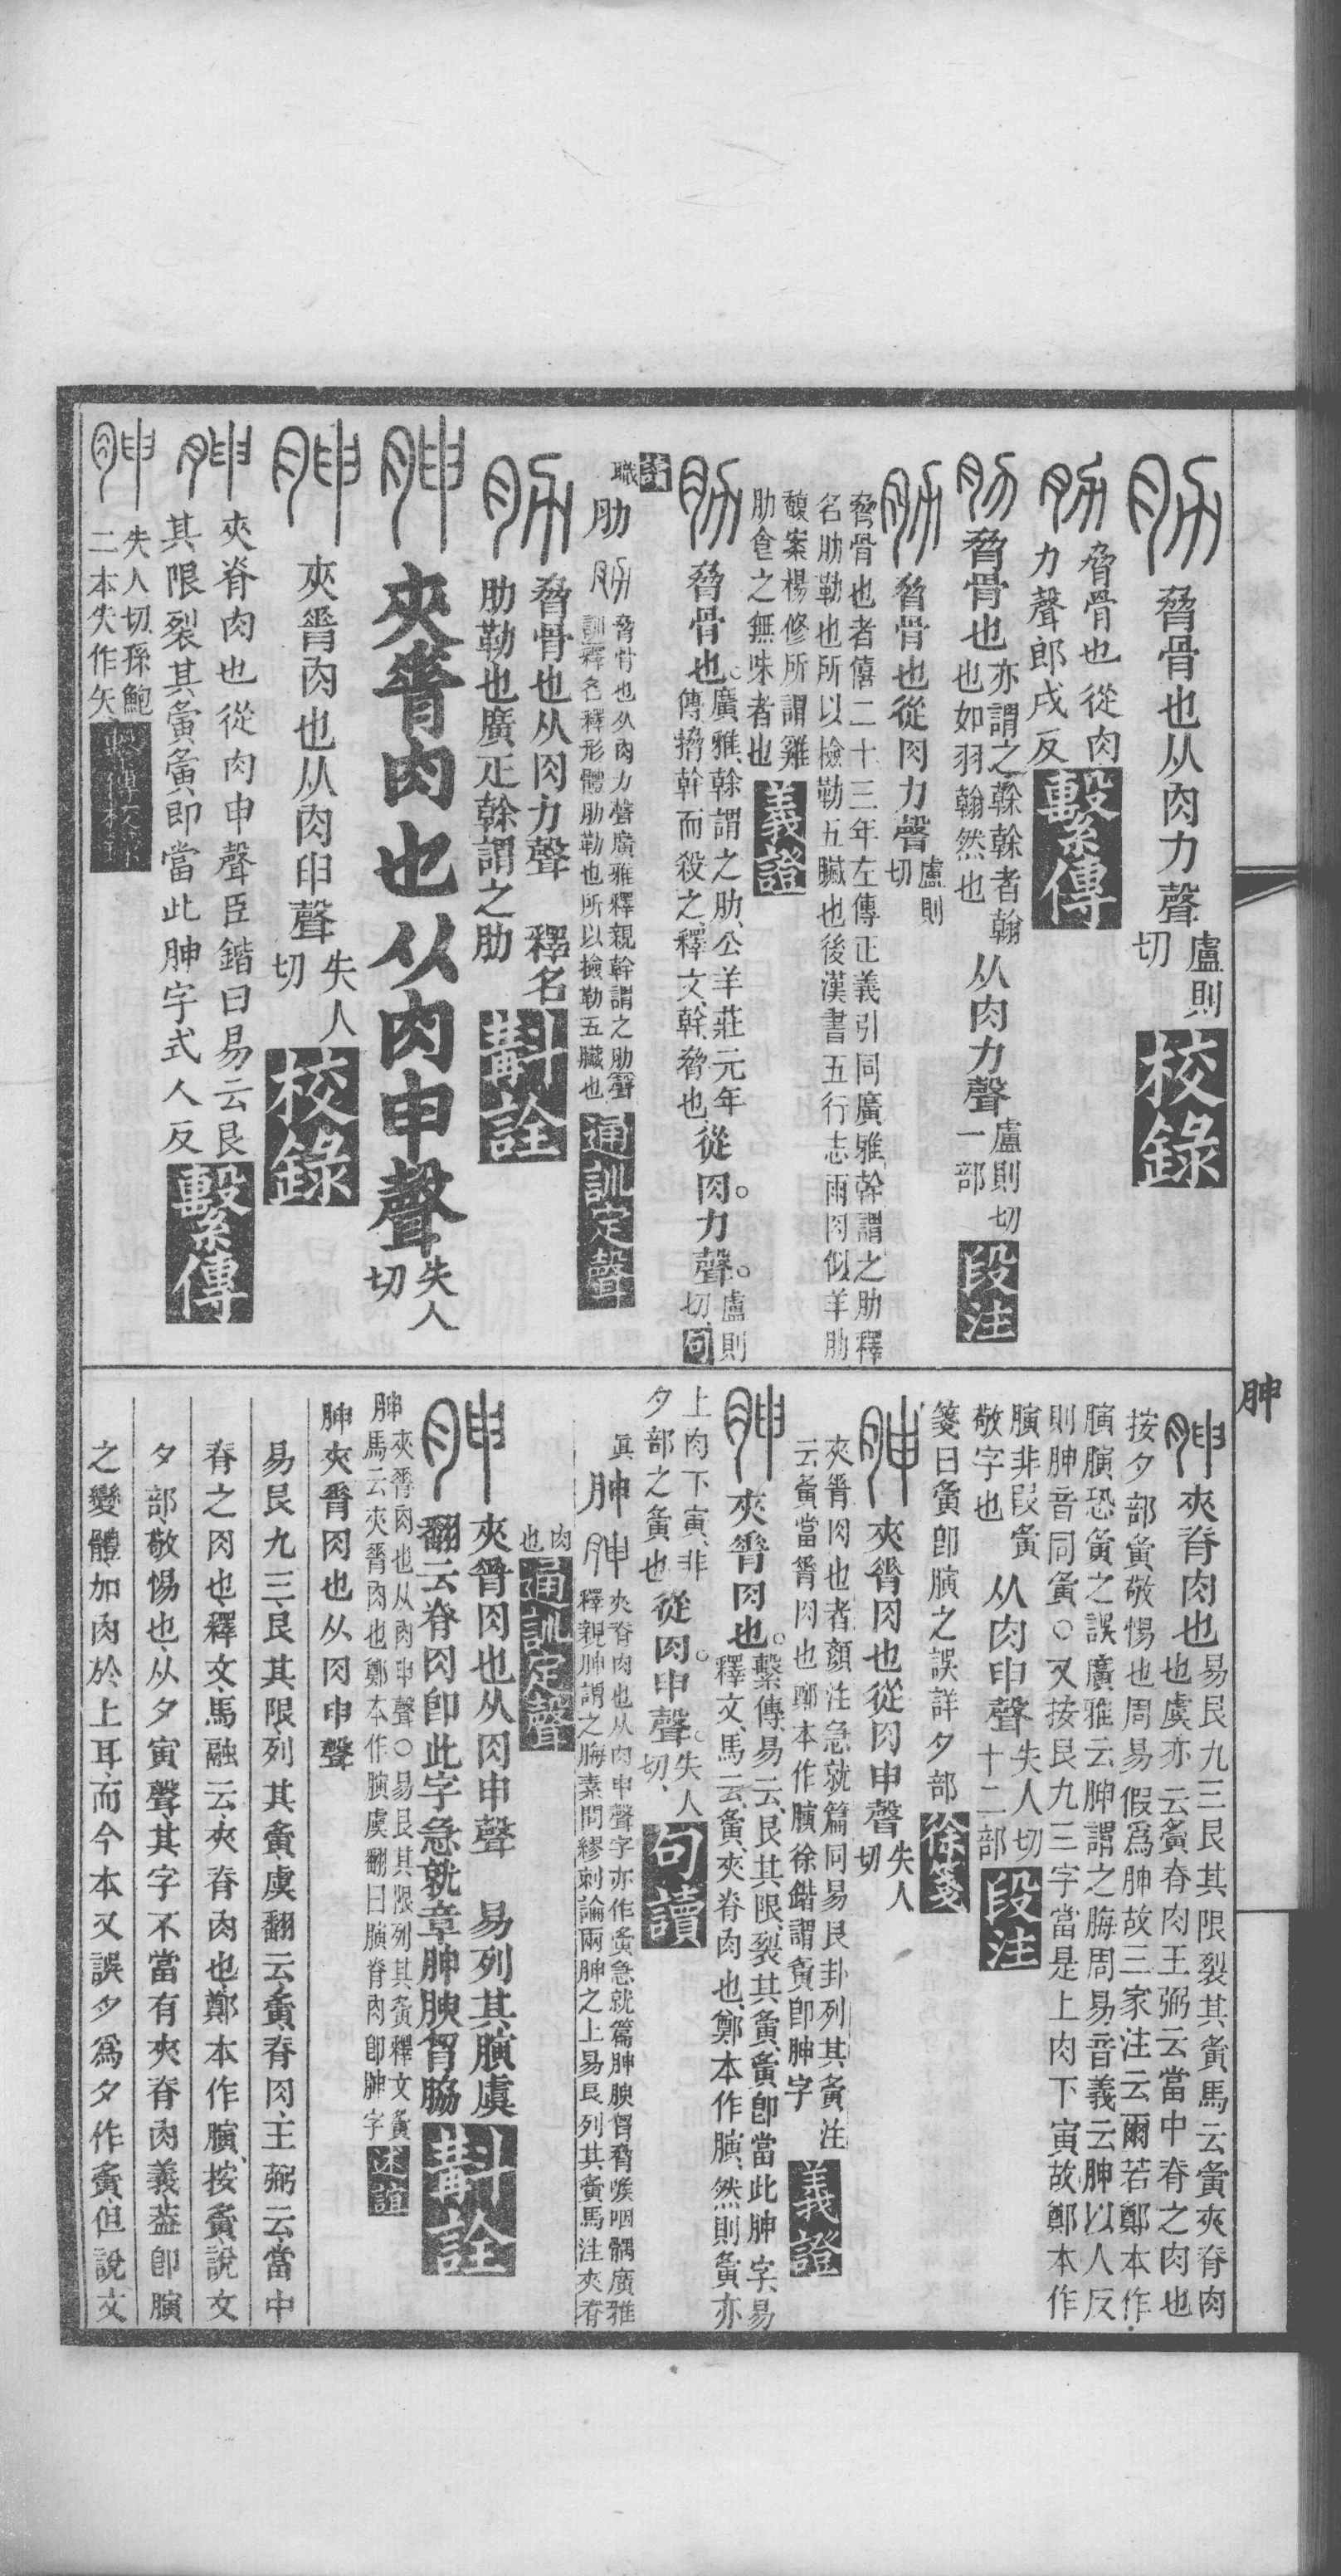 脅骨也从肉力聲
盧則
切
校錄
脅骨也從肉
力聲郎戌反
繫傳
脅骨也
亦謂之榦榦者翰
也如羽翰然也
从肉力聲
盧則切
一部
段注
脅骨也從肉力聲
盧則
切
脅骨也者僖二十三年左傳正義引同廣雅幹謂之肋釋
名肋勒也所以檢勒五臟也後漢書五行志雨肉似羊肋
馥案楊修所謂雞
肋食之無味者也
義證
脅骨也。
廣雅榦謂之肋公羊莊元年
傳搚幹而殺之釋文幹脅也
從肉。力聲。
盧則
切
句
讀
職
肋
脅骨也从肉力聲廣雅釋親幹謂之肋聲
訓釋名釋形體肋勒也所以檢勒五臟也
通訓定聲
脅骨也从肉力聲 釋名
肋勒也廣疋榦謂之肋
斠詮
夾脊肉也从肉申聲
失人
切
夾脊肉也从肉申聲
失人
切
校錄
夾脊肉也從肉申聲臣鍇曰易云艮
其限裂其夤夤即當此胂字式人反
繫傳
失人切孫鮑
二本失作矢
胂
夾脊肉也
易艮九三艮其限裂其夤馬云夤夾脊肉
也虞亦云夤脊肉王弼云當中脊之肉也
按夕部夤敬惕也周易假爲胂故三家注云爾若鄭本作
䐡䐡恐夤之誤廣雅云胂謂之脢周易音義云胂以人反
則胂音同夤○又按艮九三字當是上肉下寅故鄭本作
䐡非叚夤
敬字也
从肉申聲
失人切
十二部
段注
箋曰夤卽䐡之誤詳夕部
徐箋
夾脊肉也從肉申聲
失人
切
夾脊肉也者顏注急就篇同易艮卦列其夤注
云夤當脊肉也鄭本作䐡徐鍇謂夤卽胂字
義證
夾脊肉也。
繫傳易云艮其限裂其夤夤卽當此胂字易
釋文馬云夤夾脊肉也鄭本作䐡然則夤亦
上肉下寅非
夕部之夤也
從肉。申聲。
失人
切
句讀
眞
胂
夾脊肉也从肉申聲字亦作夤急就篇胂腴䏚脅喉咽髃廣雅
釋親胂謂之脢素問繆刺論兩胂之上易艮列其夤馬注夾脊
肉
也
通訓定聲
夾脊肉也从肉申聲 易列其䐡虞
翻云脊肉卽此字急就章胂腴䏚脇
斠詮
胂
夾脊肉也从肉申聲○易艮其限列其夤釋文夤
馬云夾脊肉也鄭本作䐡虞翻曰䐡脊肉卽胂字
述誼
胂夾脊肉也从肉申聲
易艮九三艮其限列其夤虞翻云夤脊肉王弼云當中
脊之肉也釋文馬融云夾脊肉也鄭本作䐡按夤說文
夕部敬惕也从夕寅聲其字不當有夾脊肉義葢卽䐡
之變體加肉於上耳而今本又誤夕爲夕作夤但說文